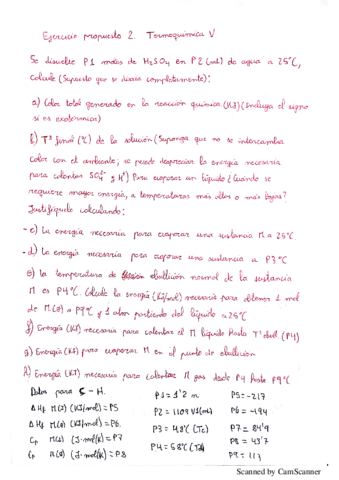 Ejercicio propuesto 2. Termoquímica V
Se disuelve P1 moles de H₂SO₄ en P2 (mL) de agua a 25°C,
calcule (Supuesto que se disocia completamente):
a) Calor total generado en la reacción química. (KJ) (Incluya el signo
si es exotérmica)
b) Tª final (°C) de la solución (Suponga que no se intercambia
calor con el ambiente, se puede despreciar la energía necesaria
para calentar SO₄²⁻ y H⁺) Para evaporar un líquido ¿Cuándo se
requiere mayor energía, a temperaturas más altas o más bajas?
Justifíquelo calculando:
- c) La energía necesaria para evaporar una sustancia M a 25°C.
- d) La energía necesaria para evaporar una sustancia a P3 °C
e) la temperatura de ebullición normal de la sustancia
M es P4°C. Calcule la energía (KJ/mol) necesaria para obtener 1 mol
de M(g) a P9°C y 1 atm partiendo del líquido a 25°C
f) Energía (KJ) necesaria para calentar el M líquido hasta Tª ebull. (P4)
g) Energía (KJ) para evaporar M en el punto de ebullición
h) Energía (KJ) necesaria para calentar M gas desde P4 hasta P9°C
Datos para C - H.
P1 = 1'2 m
P5 = -217
Δ Hf M(l) (KJ/mol) = P5
P2 = 1109 V1 (mL)
P6 = -194
Δ Hf M(g) (KJ/mol) = P6.
P3 = 48°C (Tc)
P7 = 84'9
Cp M(l) (J·mol/K) = P7
P4 = 58°C
P8 = 43'7
Cp (g) (J·mol/K) = P8
P9 = 113
Scanned by CamScanner